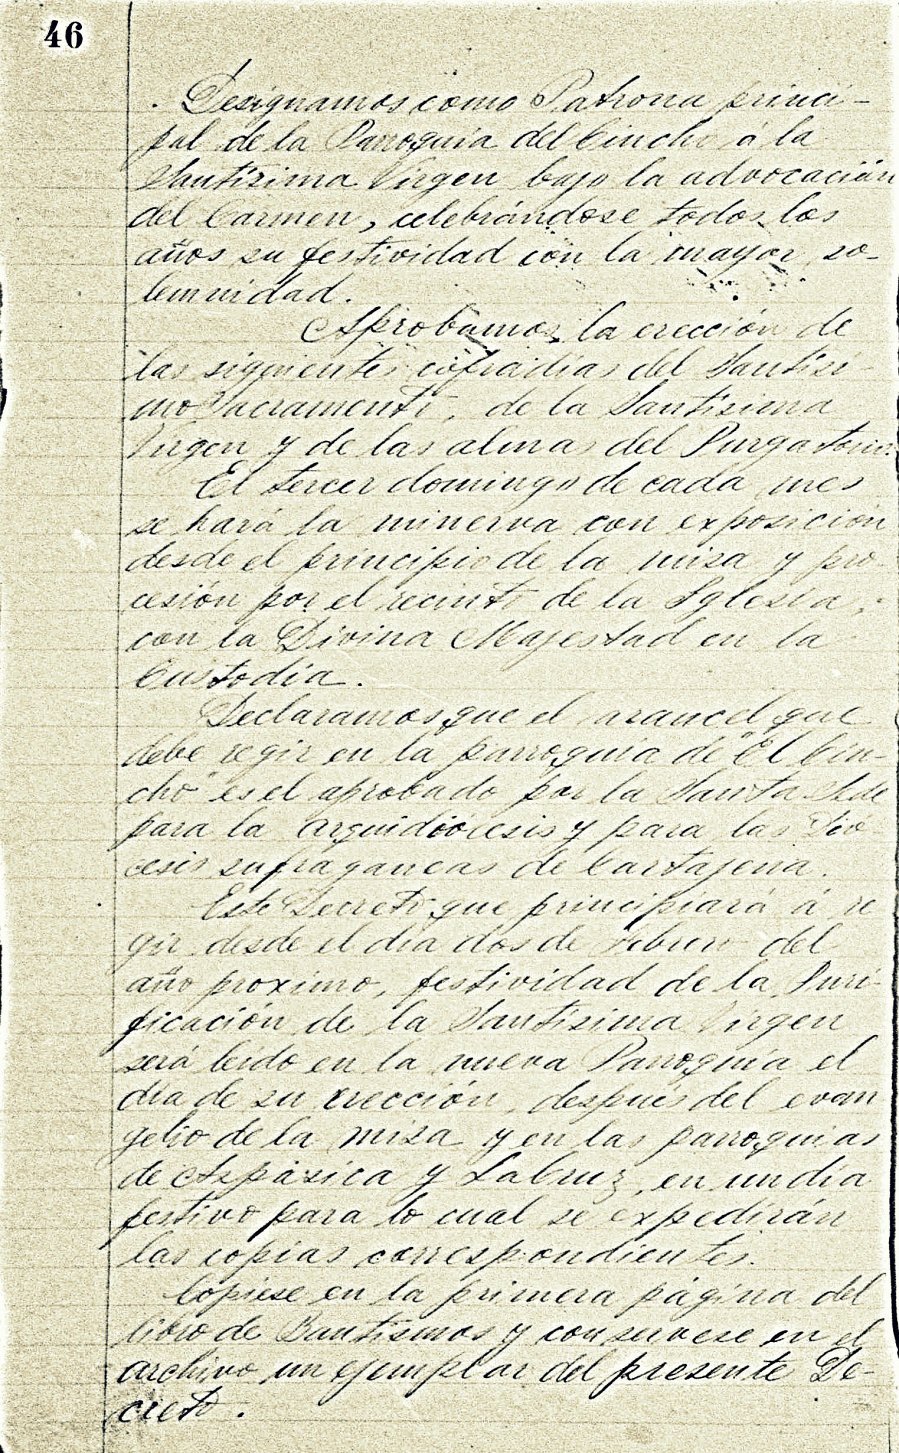 46
Designamos como Patrona princi-
pal de la Parroquia del Cincho á la
Santísima Virgen bajo la advocación
del Carmen, celebrándose todos los
años su festividad con la mayor so-
lemnidad.
Aprobamos la erección de
las siguientes cofradías del Santísi
mo Sacramento, de la Santísima
Virgen y de las almas del Purgatorio.
El tercer domingo de cada mes
se hará la minerva con exposición
desde el principio de la misa y pro
cesión por el recinto de la Iglesia,
con la Divina Majestad en la
Custodia.
Declaramos que el arancel que
debe regir en la parroquia de "El Cin-
cho" es el aprobado por la Santa Sede
para la Arquidiocesis y para las Dió
cesis sufraganeas de Cartajena.
Este Decreto que principiará á re
gir desde el día dos de Febrero del
año proximo, festividad de la Puri-
ficación de la Santísima Virgen
será leido en la nueva Parroquia el
dia de su erección, después del evan
gelio de la misa y en las parroquias
de Aspásica y La Cruz, en un día
festivo para lo cual se expedirán
las copias correspondientes.
Cópiese en la primera página del
libro de Bautismos y conservese en el
archivo un ejemplar del presente De-
creto.